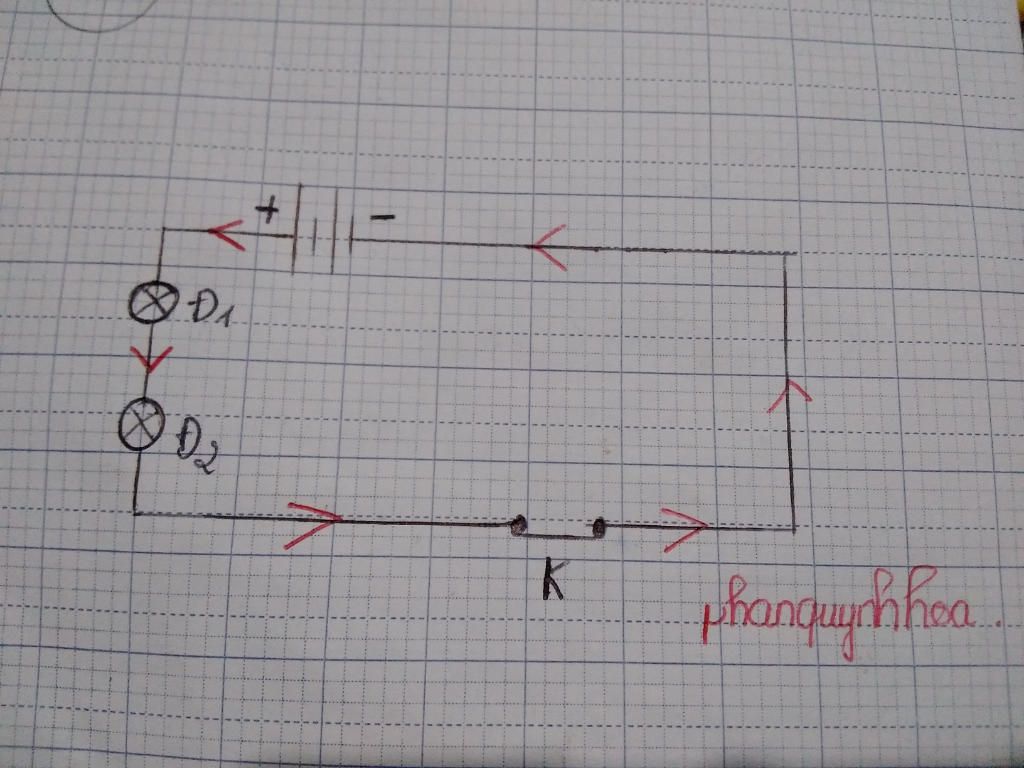 + -
Đ1
Đ2
K
phanquynhhoa.